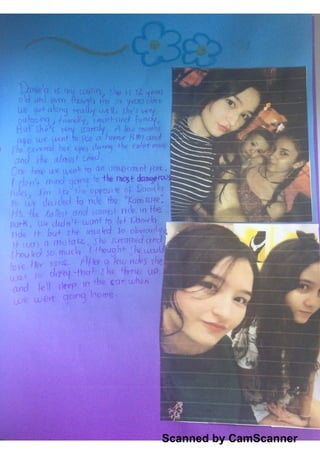 Daniela is my cousin, she is 12 years
old and even though I'm six years older
we get along really well. She's very
outgoing, friendly, smart and funny.
But she's very cowardly. A few months
ago we went to see a horror film and
she covered her eyes during the entire movie
and she almost cried.
One time we went to an amusement park.
I don't mind going to the most dangerous
rides, I'm like the opposite of Daniela
so we decided to ride the "Kamikaze",
it's the tallest and ride in the
park, we didn't want to let Daniela
ride it but she insisted so obviously
it was a mistake. She screamed and
shouted so much I thought she would
lose her voice. After a few rides she
was so dizzy that she threw up
and fell asleep in the car when
we were going home.
Scanned by CamScanner